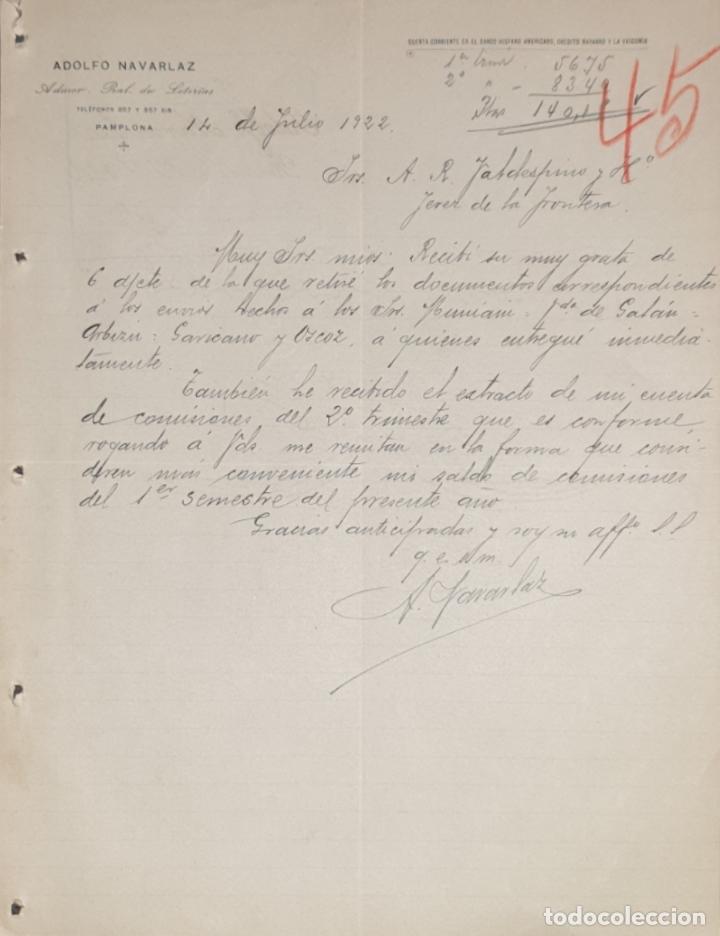 CUENTA CORRIENTE EN EL BANCO HISPANO AMERICANO, CRÉDITO NAVARRO Y LA VASCONIA
ADOLFO NAVARLAZ
Admor. Pral. de Loterías
TELÉFONOS 857 Y 857 BIS
PAMPLONA
1er trim. 5675
2º " - 8340
Ptas 140,15
45
14 de Julio 1922.
Srs. A. R. Valdespino y Hº
Jerez de la Frontera.
Muy Srs. mios: Recibí su muy grata de
6 d/cte de la que retiré los documentos correspondientes
á los envios hechos á los Srs. Muniain - Vda de Galán -
Arbizu - Garicano y Oscoz, á quienes entregué inmedia-
tamente.
También he recibido el extracto de mi cuenta
de comisiones del 2º trimestre que es conforme,
rogando á Vds me remitan en la forma que consi-
deren más conveniente mi saldo de comisiones
del 1er semestre del presente año
Gracias anticipadas y soy su affº s.s.
q.e.s.m.
A. Navarlaz
todocoleccion.net